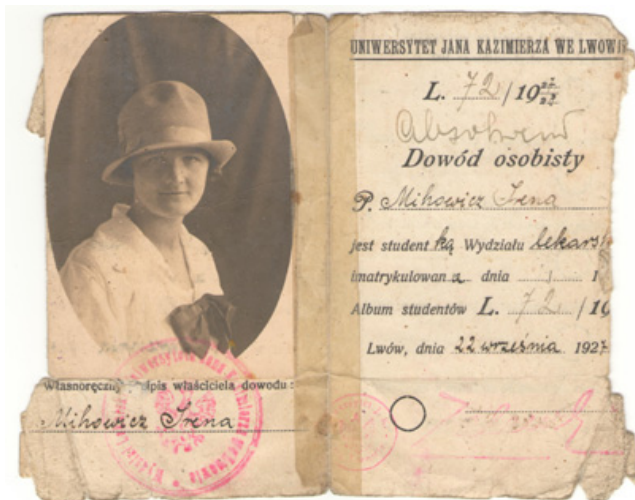 UNIWERSYTET JANA KAZIMIERZA WE LWOWIE
L. 72 / 19
Dowód osobisty
P. Mihowicz Irena
jest studentką Wydziału lekarsk
imatrykulowana dnia 1
Album studentów L. 72 / 19
Lwów, dnia 22 września 1927
Własnoręczny podpis właściciela dowodu:
Mihowicz Irena